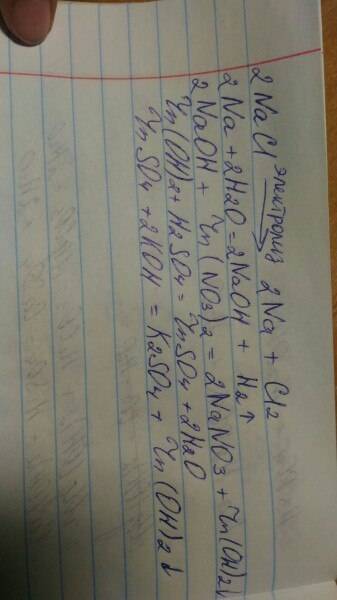 2NaCl электролиз 2Na + Cl2
2Na + 2H2O = 2NaOH + H2↑
2NaOH + Zn(NO3)2 = 2NaNO3 + Zn(OH)2↓
Zn(OH)2 + H2SO4 = ZnSO4 + 2H2O
ZnSO4 + 2KOH = K2SO4 + Zn(OH)2↓